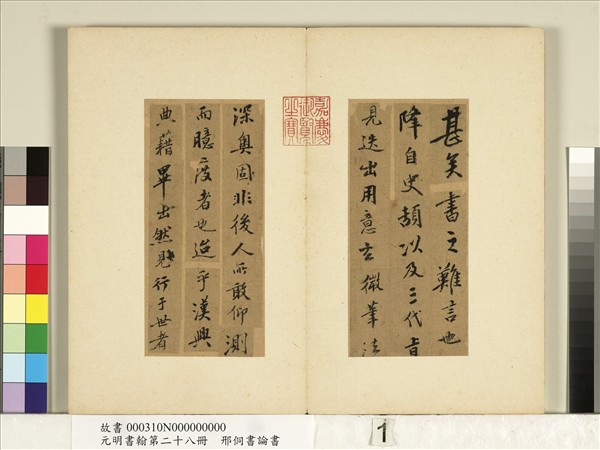 甚矣書之難言也
降自史頡以及三代皆
見迭出用意玄微筆法
深奧固非後人所敢仰測
而臆度者也迨乎漢興
典藉畢出然見行于世者
嘉慶御覽之寶
故書 000310N000000000
元明書翰第二十八冊 邢侗書論書
1